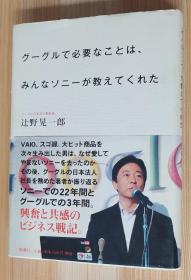 グーグルで必要なことは、
みんなソニーが教えてくれた
辻野晃一郎
VAIO、スゴ録、大ヒット商品を
次々生み出した男は、なぜ愛して
やまないソニーを去ったのか
その後、グーグルの日本法人
社長を務めた著者が振り返る
ソニーでの22年間と
グーグルでの3年間。
興奮と共感の
ビジネス戦記。